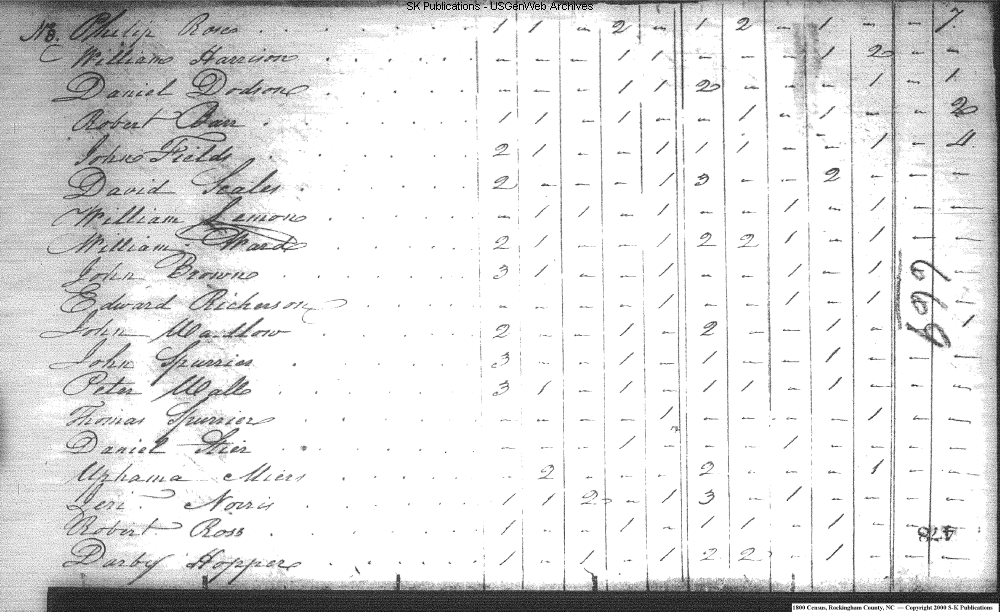 SK Publications - USGenWeb Archives
Philip Ross 1 1 - 2 - 1 2 - 1 - - 7
William Harrison - - - 1 1 - - - 1 2 - -
Daniel Dodson - - - 1 1 2 - - - 1 - 1
Robert Barr 1 1 - 1 - - 1 - 1 - - 2
John Fields 2 1 - - 1 1 1 - - 1 - 4
David Scales 2 - - - 1 3 - - 2 - - -
William Lemon - 1 1 - 1 - - 1 - 1 - -
William Ward 2 1 - - 1 2 2 1 - 1 - -
John Brown 3 1 - - 1 - - 1 - 1 - -
Edward Richerson - - - - 1 - - 1 - 1 - -
John Wadlow 2 - - 1 - 2 - - 1 - - 1
John Spurrier 3 - - 1 - 1 - - 1 - - -
Peter Wall 3 1 - 1 - 1 1 - 1 - - -
Thomas Spurrier - - - - 1 - - - - 1 - -
Daniel - - - 1 - - - 1 - - - -
Miers - 2 - - - 2 - - - 1 - -
Noris 1 1 2 - 1 3 - 1 - - - -
Robert Ross 1 - - 1 - 1 1 - 1 - - -
Darby Hopper 1 - 1 - 1 2 2 - 1 - - -
478
1800 Census, Rockingham County, NC — Copyright 2000 S-K Publications